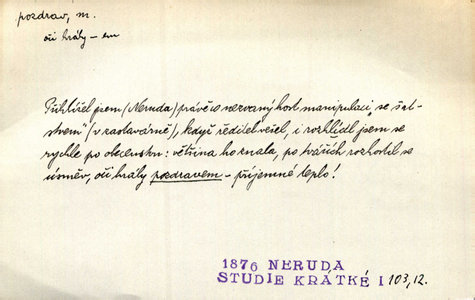 pozdrav, m.
oči hrály – em
Přihlížel jsem (Neruda) právě co nezvaný host manipulaci „se šat-
stvem" (v zastavárně), když ředitel vešel, i rozhlídl jsem se
rychle po obecenstvu: většina ho znala, po tvářích rozhostil se
úsměv, oči hrály pozdravem – příjemné teplo!
1876 NERUDA
STUDIE KRÁTKÉ I 103, 12.